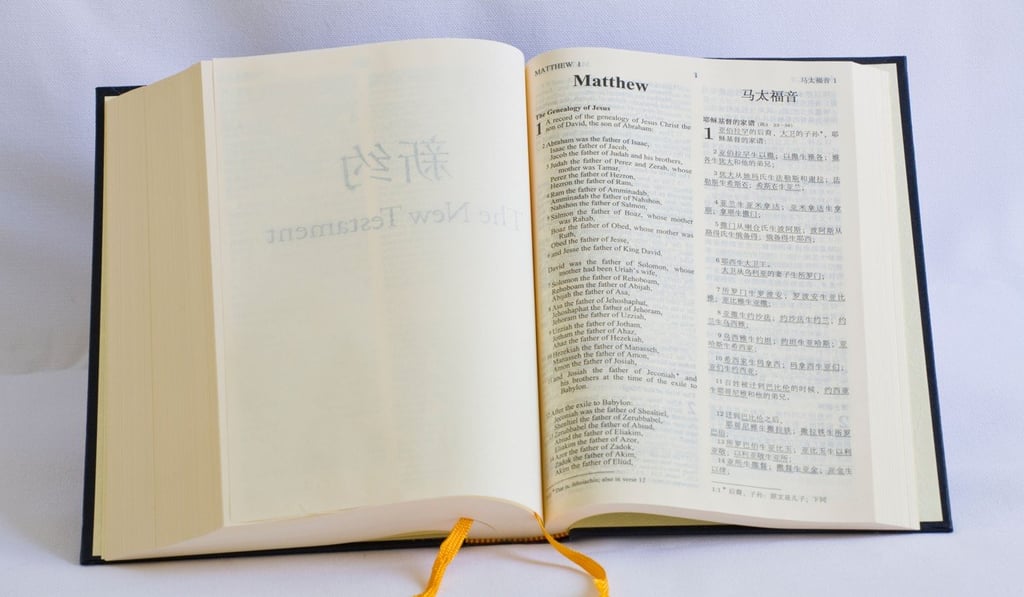 新约
The New Testament
MATTHEW 1
1
Matthew
The Genealogy of Jesus
1 A record of the genealogy of Jesus Christ the
son of David, the son of Abraham:
2 Abraham was the father of Isaac,
Isaac the father of Jacob,
Jacob the father of Judah and his brothers,
3 Judah the father of Perez and Zerah, whose
mother was Tamar,
Perez the father of Hezron,
Hezron the father of Ram,
4 Ram the father of Amminadab,
Amminadab the father of Nahshon,
Nahshon the father of Salmon,
5 Salmon the father of Boaz, whose mother
was Rahab,
Boaz the father of Obed, whose mother was
Ruth,
Obed the father of Jesse,
6 and Jesse the father of King David.
David was the father of Solomon, whose
mother had been Uriah's wife,
7 Solomon the father of Rehoboam,
Rehoboam the father of Abijah,
Abijah the father of Asa,
8 Asa the father of Jehoshaphat,
Jehoshaphat the father of Jehoram,
Jehoram the father of Uzziah,
9 Uzziah the father of Jotham,
Jotham the father of Ahaz,
Ahaz the father of Hezekiah,
10 Hezekiah the father of Manasseh,
Manasseh the father of Amon,
Amon the father of Josiah,
11 and Josiah the father of Jeconiah* and
his brothers at the time of the exile to
Babylon.
12 After the exile to Babylon:
Jeconiah was the father of Shealtiel,
Shealtiel the father of Zerubbabel,
13 Zerubbabel the father of Abiud,
Abiud the father of Eliakim,
Eliakim the father of Azor,
14 Azor the father of Zadok,
Zadok the father of Akim,
Akim the father of Eliud,
* That is, Jehoiachin; also in verse 12
马太福音 1
马太福音
耶稣基督的家谱
1 亚伯拉罕的后裔，大卫的子孙*，耶
稣基督的家谱：
2 亚伯拉罕生以撒；以撒生雅各；雅
各生犹大和他的弟兄；
3 犹大从她玛氏生法勒斯和谢拉；法
勒斯生希斯仑；希斯仑生亚兰；
4 亚兰生亚米拿达；亚米拿达生拿
顺；拿顺生撒门；
5 撒门从喇合氏生波阿斯；波阿斯从
路得氏生俄备得；俄备得生耶西；
6 耶西生大卫王。
大卫从乌利亚的妻子生所罗门；
7 所罗门生罗波安；罗波安生亚比
雅；亚比雅生亚撒；
8 亚撒生约沙法；约沙法生约兰；约
兰生乌西雅；
9 乌西雅生约坦；约坦生亚哈斯；亚
哈斯生希西家；
10 希西家生玛拿西；玛拿西生亚们；
亚们生约西亚；
11 百姓被迁到巴比伦的时候，约西亚
生耶哥尼雅和他的弟兄。
12 迁到巴比伦之后，
耶哥尼雅生撒拉铁；撒拉铁生所罗
巴伯；
13 所罗巴伯生亚比玉；亚比玉生以利
亚敬；以利亚敬生亚所；
14 亚所生撒督；撒督生亚金；亚金生
以律；
1:1 * 后裔，子孙：原文是儿子；下同